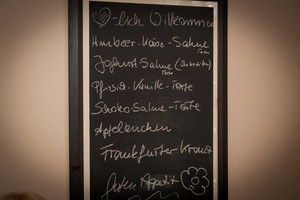 -lich Willkommen
Himbeer-Käse-Sahne
Torte
Joghurt Sahne
Torte
Pfirsich-Vanille-Torte
Schoko-Sahne-Torte
Apfelkuchen
Frankfurter-Kranz
Guten Appetit